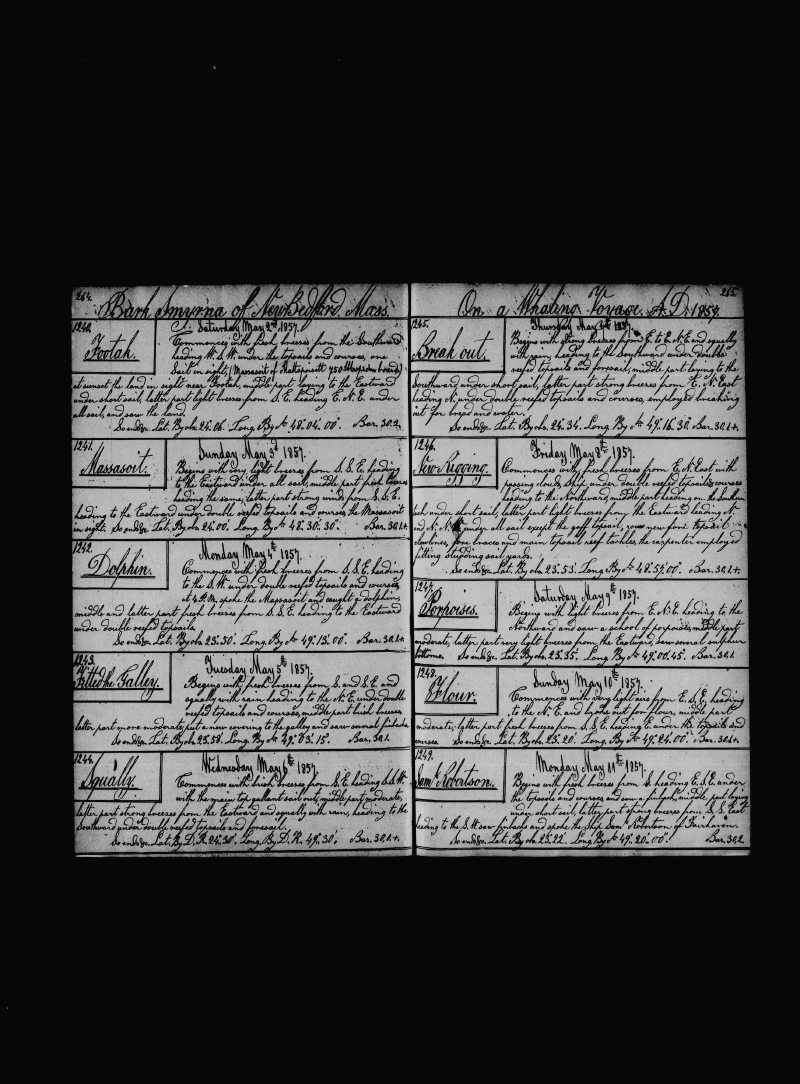 264.
Bark Smyrna of New Bedford, Mass.
1240.
Footah.
Saturday May 2nd 1857.
Commences with fresh breezes from the Southward
heading W. S. W. under the topsails and courses, one
Sail in sight, (Massasoit of Mattapoisett 750
at sunset the land in sight near Footah, middle part laying to the Eastward
under short sail, latter part light breezes from S. E. heading E. N. E. under
all sail, and saw the land.
So ends &c. Lat. By obs. 24.06. Long. By ⁂ 48.04.00". Bar. 30.2.
1241.
Massasoit.
Sunday May 3d 1857.
Begins with very light breezes from S. S. E. heading
to the Eastward under all sail, middle part fresh breezes
heading the same, latter part strong winds from S. S. E.
heading to the Eastward under double reefed topsails and courses, the Massasoit
in sight. So ends &c. Lat. By obs. 24.00'. Long By ⁂ 48.30.30". Bar. 30.1+.
1242.
Dolphin.
Monday May 4th 1857.
Commences with fresh breezes from S. S. E. heading
to the S. W. under double reefed topsails and courses,
At 4 P. M. spoke the Massasoit and caught a dolphin,
middle and latter part fresh breezes from S. S. E. heading to the Eastward
under double reefed topsails.
So ends &c. Lat. By obs. 23.50'. Long By ⁂ 49.13.00". Bar. 30.1+.
1243.
Fitted the Galley.
Tuesday May 5th 1857.
Begins with fresh breezes from S. and S. E. and
squally with rain heading to the N. E. under double
reefed topsails and courses, middle part brisk breezes
latter part more moderate, put a new covering to the galley and saw several finbacks.
So ends &c. Lat. By obs. 23.58'. Long. By ⁂ 49.03.15". Bar. 30.1.
1244.
Squally.
Wednesday May 6th 1857.
Commences with brisk breezes from S. E. heading S. S. W.
with the main top gallant sail out, middle part moderate,
latter part strong breezes from the Eastward and squally with rain, heading to the
Southward under double reefed topsails and foresail.
So ends &c. Lat. By D. R. 24.30'. Long. By D. R. 49.30'. Bar. 30.1.+.
265.
On a Whaling Voyage. A. D. 1857.
1245.
Break out.
Thursday May 7th 1857.
Begins with strong breezes from E. to E. N. E. and squally
with rain, heading to the Southward under double
reefed topsails and foresail, middle part laying to the
Southward under short sail, latter part strong breezes from E. N. East
heading N. under double reefed topsails and courses, employed breaking
out for bread and water.
So ends &c. Lat. By obs. 24.34. Long By ⁂ 49.16.30". Bar. 30.1+.
1246.
New Rigging.
Friday May 8th 1857.
Commences with fresh breezes from E. N. East with
passing clouds, Ship under double reefed topsails & courses
heading to the Northward, middle part heading on the Southern
tack under short sail, latter part light breezes from the Eastward heading N.
and N. N. under all sail except the gaff topsail, rove new fore topsail
clewlines, fore braces and main topsail reef tackles, the carpenter employed
fitting studding sail yards.
So ends &c. Lat. By obs. 23.53. Long By ⁂ 48.57.00". Bar. 30.1+.
1247.
Porpoises.
Saturday May 9th 1857.
Begins with light breezes from E. N. E. heading to the
Northward and saw a school of porpoises, middle part
moderate, latter part very light breezes from the Eastward, saw several sulphur
bottoms. So ends &c. Lat. By obs. 23.35. Long By ⁂ 49.00.45. Bar. 30.1.
1248.
Flour.
Sunday May 10th 1857.
Commences with very light airs from E. S. E. heading
to the N. E. and broke out for flour, middle part
moderate, latter part fresh breezes from S. S. E. heading E. under the topsails and
courses. So ends &c. Lat. By obs. 23.20'. Long. By ⁂ 49.24.00". Bar. 30.1+.
1249.
Saml. Robertson.
Monday May 11th 1857.
Begins with fresh breezes from S. heading E. S. E. under
the topsails and courses and saw a finback, middle part laying
under short sail, latter part strong breezes from S. S. East
heading to the S. W. saw finbacks and spoke the Ship Saml. Robertson of Fairhaven.
So ends &c. Lat. By obs. 23.22. Long By ⁂ 49.20.00". Bar. 30.2.